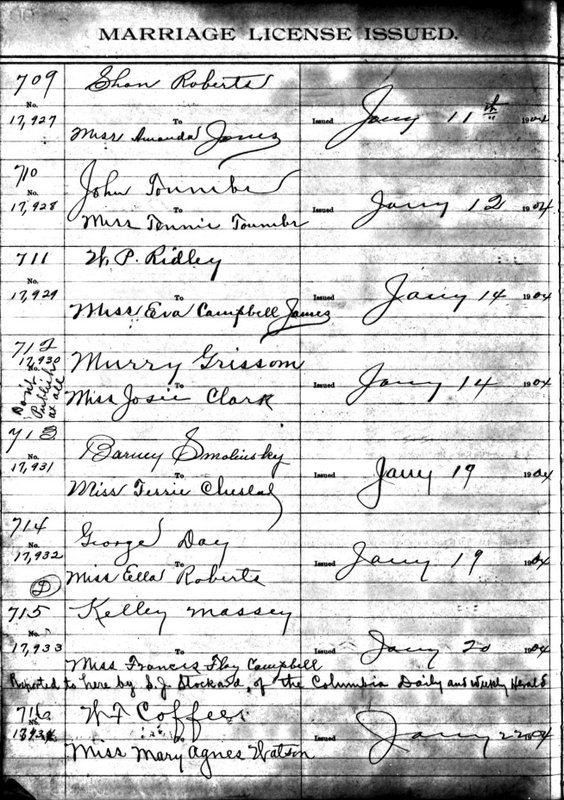 MARRIAGE LICENSE ISSUED.
709 Shan Roberts
No. 17,927 To Issued Jany 11th 1904
Miss Amanda Jones
710 John Toumbs
No. 17,928 To Issued Jany 12 1904
Miss Tennie Toumbs
711 W. P. Ridley
No. 17,929 To Issued Jany 14 1904
Miss Eva Campbell James
712 Murry Grissom
No. 17,930 To Issued Jany 14 1904
Don't Publish at all
Miss Josie Clark
713 Barney Smolinsky
No. 17,931 To Issued Jany 19 1904
Miss Terrie
714 George Day
No. 17,932 To Issued Jany 19 1904
D Miss Ella Roberts
715 Kelley Massey
No. 17,933 To Issued Jany 20 1904
Miss Francis Flay Campbell
Reported to here by S.J. Stockard, of the Columbia Daily and Weekly Herald
716 W F Coffee
No. 17,934 To Issued Jany 22 1904
Miss Mary Agnes Watson